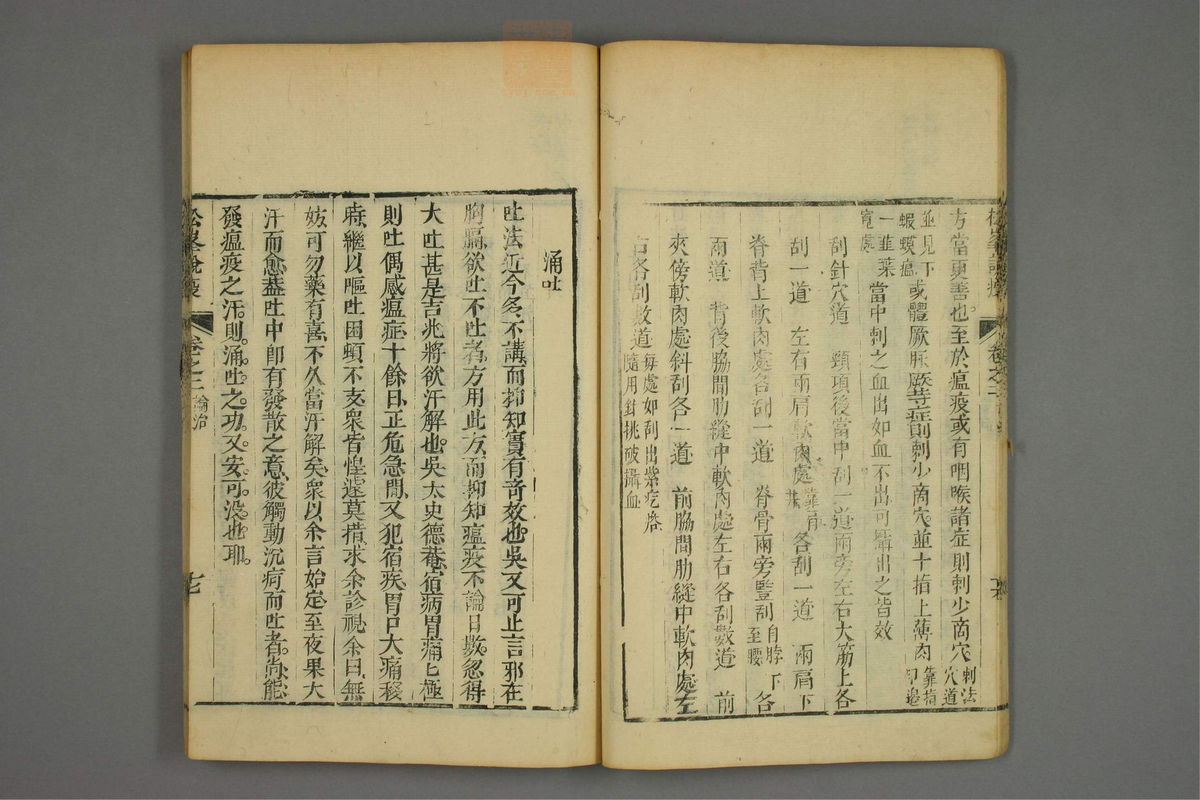 松峯說疫
卷之二
方當更善也至於瘟疫或有咽喉諸症則刺少商穴刺法穴道
並見下蝦蟆瘟或體厥脈厥等症則刺少商穴並十指上薄肉靠指甲邊
一韭葉寬處當中刺之血出如血不出可攝出之皆效
刮針穴道　頸項後當中刮一道兩旁左右大筋上各
刮一道　左右兩肩軟肉處靠肩各刮一道　兩肩下
脊背上軟肉處各刮一道　脊骨兩旁豎刮自脖下至腰各
兩道　背後脇間肋縫中軟肉處左右各刮數道　前
夾傍軟肉處斜刮各一道　前脇間肋縫中軟肉處左
右各刮數道每處如刮出紫疙瘩隨用針挑破攝血
涌吐
吐法近今多不講而抑知實有奇效也吳又可止言邪在
胸膈欲吐不吐者方用此方而抑知瘟疫不論日數忽得
大吐甚是吉兆將欲汗解也吳太史德菴宿病胃痛匕極
則吐偶感瘟症十餘日正危急間又犯宿疾胃口大痛移
時繼以嘔吐困頓不支衆皆惶遽莫措求余診視余曰無
妨可勿藥有喜不久當汗解矣衆以余言始定至夜果大
汗而愈蓋吐中卽有發散之意彼觸動沉疴而吐者尙能
發瘟疫之汗則涌吐之功又安可沒也耶
松峯說疫
卷之二 論治
七